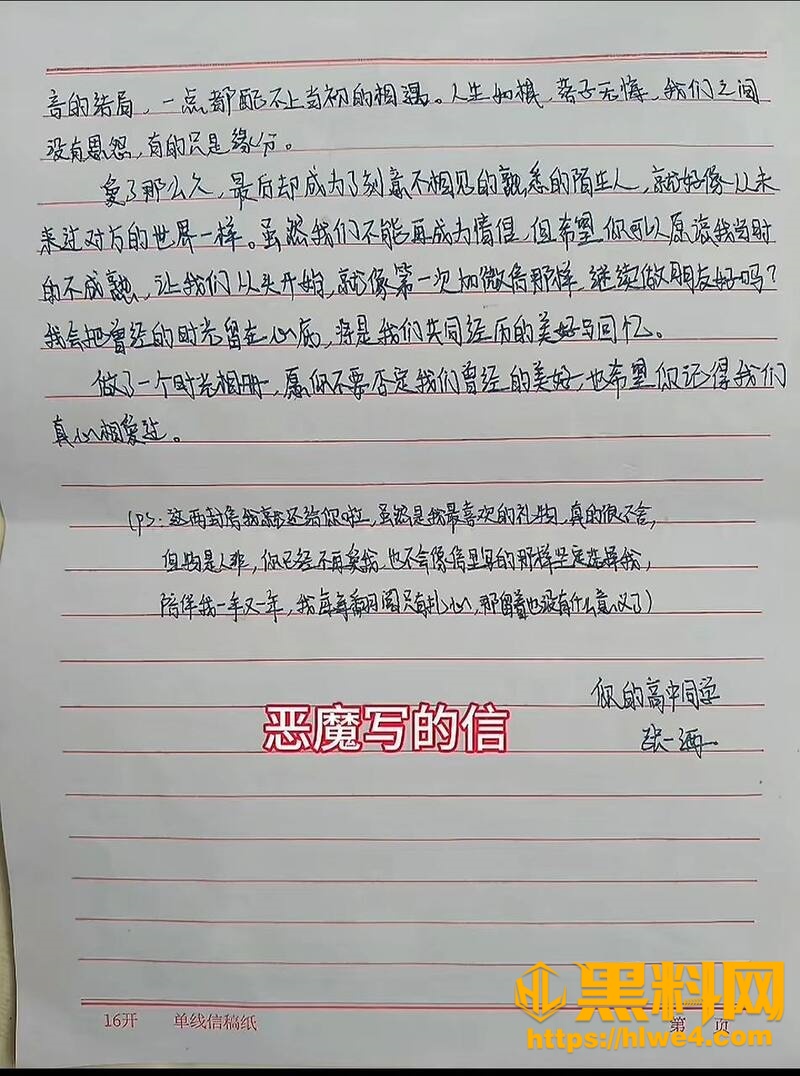 音的结局，一点都配不上当初的相遇。人生如棋，落子无悔，我们之间
没有恩怨，有的只是缘分。
爱了那么久，最后却成为了刻意不相见的熟悉的陌生人，就好像从未
来过对方的世界一样。虽然我们不能再成为情侣，但希望你可以原谅我当时
的不成熟，让我们从头开始，就像第一次加微信那样，继续做朋友好吗？
我会把曾经的时光留在心底，将是我们共同经历的美好与回忆。
做了一个时光相册，愿你不要否定我们曾经的美好，也希望你记得我们
真心相爱过。
（PS：这两封信我就还给你啦，虽然是我最喜欢的礼物，真的很不舍，
但物是人非，你已经不再爱我，也不会像信里写的那样坚定选择我，
陪伴我一年又一年，我每每翻阅只有扎心，那留着也没有什么意义了）
你的高中同学
张一
恶魔写的信
16开 单线信稿纸
第 页
黑料网
https://hlwe4.com